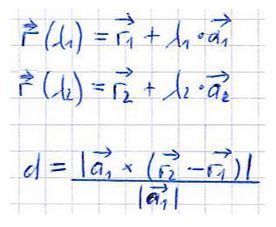 r⃗(λ₁) = r⃗₁ + λ₁ · a⃗₁
r⃗(λ₂) = r⃗₂ + λ₂ · a⃗₂
d = |a⃗₁ × (r⃗₂ - r⃗₁)| / |a⃗₁|